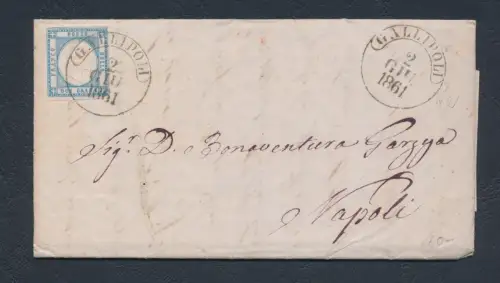 GALLIPOLI
2
GIU
1861
GALLIPOLI
2
GIU
1861
Sigr. D. Bonaventura Garzya
Napoli